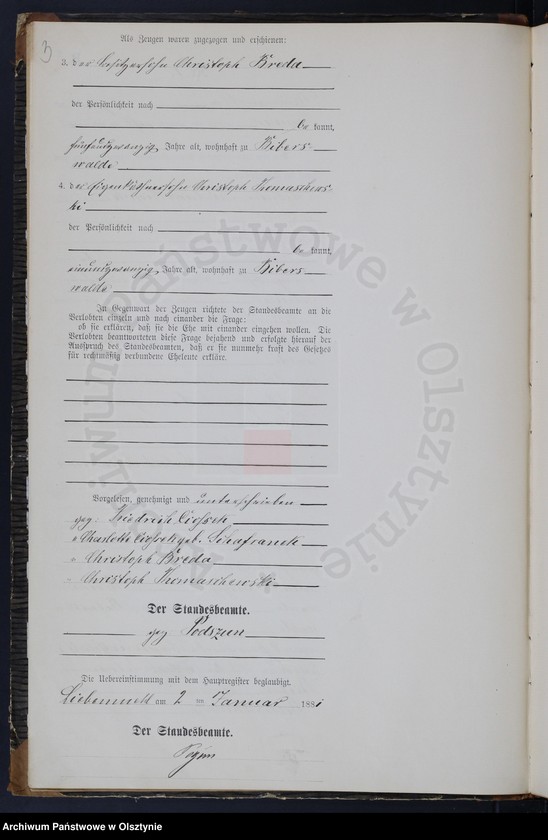 Als Zeugen waren zugezogen und erschienen:
3. der Besitzersohn Christoph Breda
der Persönlichkeit nach
be kannt,
fünfundzwanzig Jahre alt, wohnhaft zu Bibers-
walde
4. der Eigenkäthnersohn Christoph Thomaschews-
ki
der Persönlichkeit nach
be kannt,
einundzwanzig Jahre alt, wohnhaft zu Bibers
walde
In Gegenwart der Zeugen richtete der Standesbeamte an die
Verlobten einzeln und nach einander die Frage:
ob sie erklären, daß sie die Ehe mit einander eingehen wollen. Die
Verlobten beantworteten diese Frage bejahend und erfolgte hierauf der
Ausspruch des Standesbeamten, daß er sie nunmehr kraft des Gesetzes
für rechtmäßig verbundene Eheleute erkläre.
Vorgelesen, genehmigt und unterschrieben
gez. Friedrich
" Charlotte geb. Schafranek
" Christoph Breda
" Christoph Thomaschewski
Der Standesbeamte.
gez Podszun
Die Uebereinstimmung mit dem Hauptregister beglaubigt.
Liebemühl am 2 ten Januar 1881
Der Standesbeamte.
Archiwum Państwowe w Olsztynie